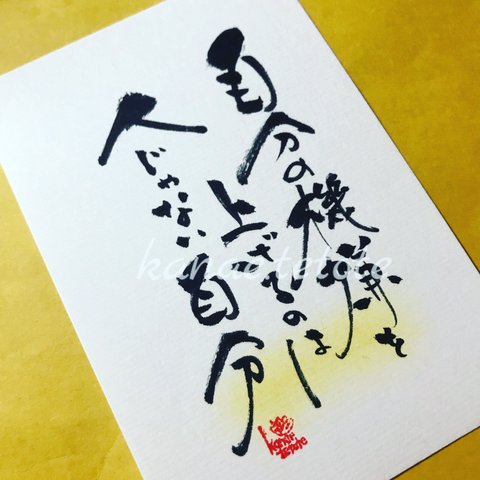 自分の機嫌を
上げるのは
人じゃない自分
kanaa.tetote